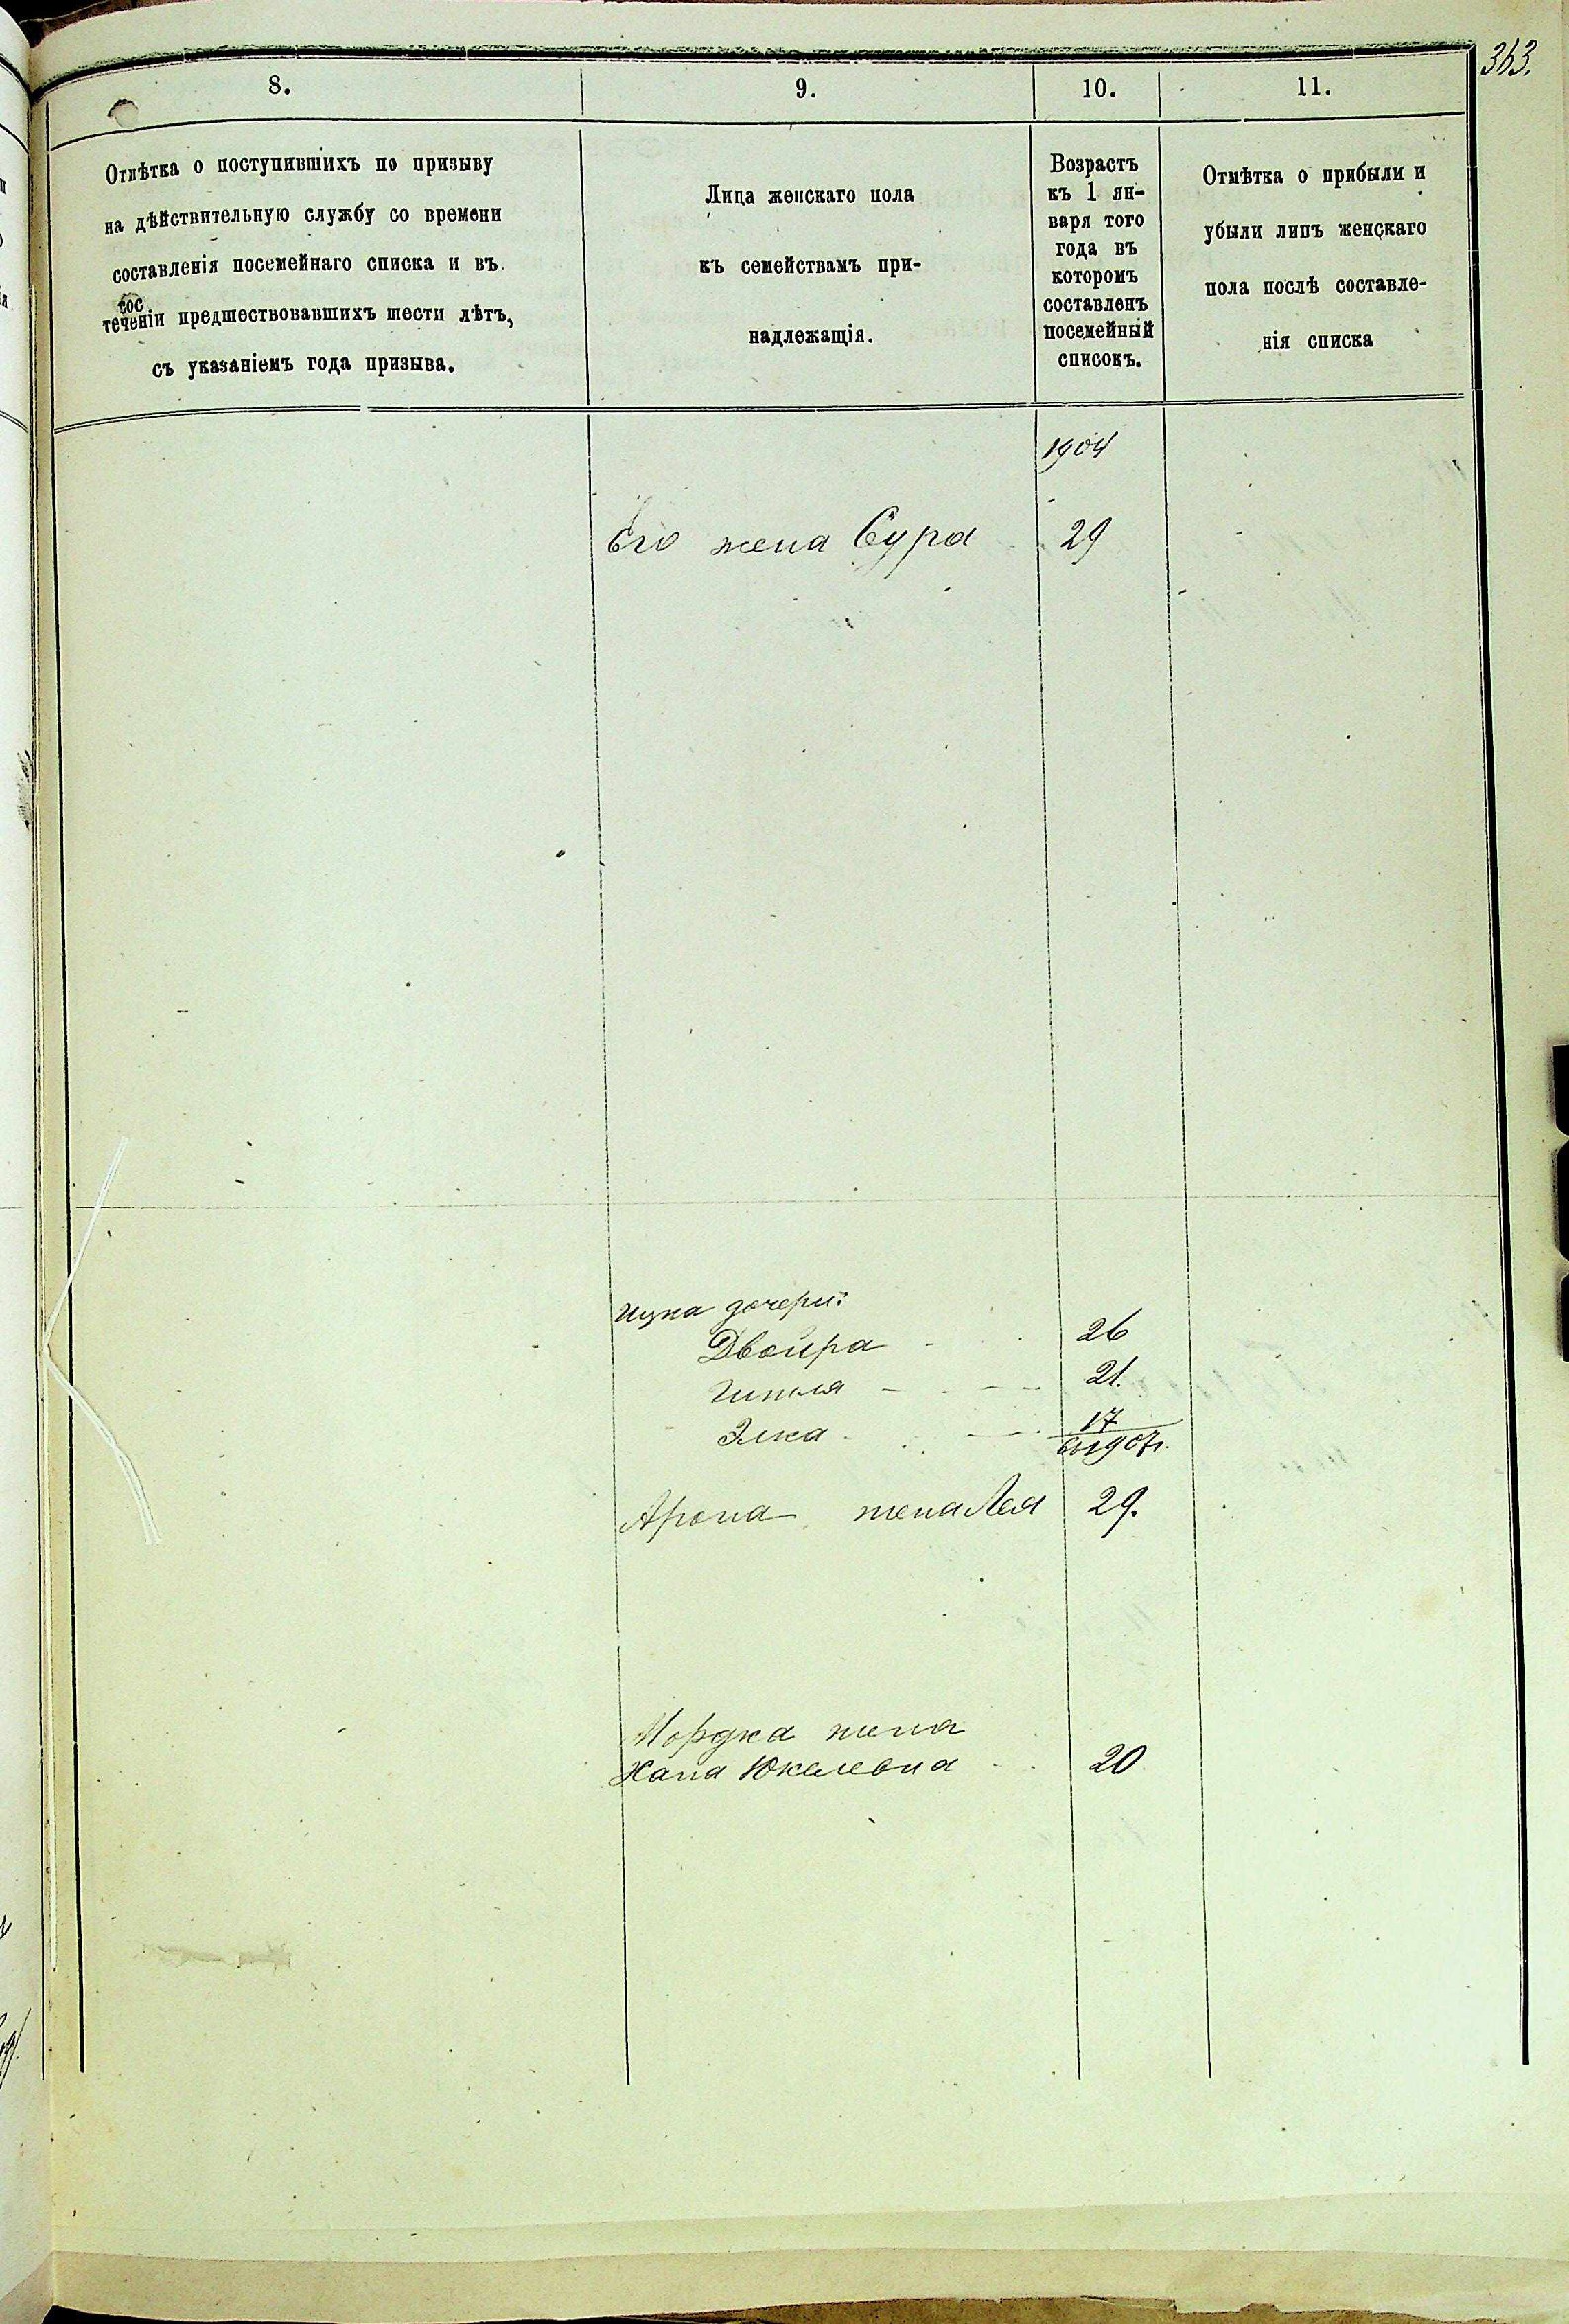 363.
8.
9.
10.
11.
Отмѣтка о поступившихъ по призыву
на дѣйствительную службу со времени
составленія посемейнаго списка и въ
теченіи предшествовавшихъ шести лѣтъ,
съ указаніемъ года призыва.
Лица женскаго пола
къ семействамъ при-
надлежащія.
Возрастъ
къ 1 ян-
варя того
года въ
которомъ
составленъ
посемейный
списокъ.
Отмѣтка о прибыли и
убыли лицъ женскаго
пола послѣ составле-
нія списка
1904
Его жена Сура 29
Ицка дочери:
Двойра 26
Гитля 21.
Элка 17
1907г.
Арона жена Лея 29.
Мордка жена
Хана Юкелевна 20